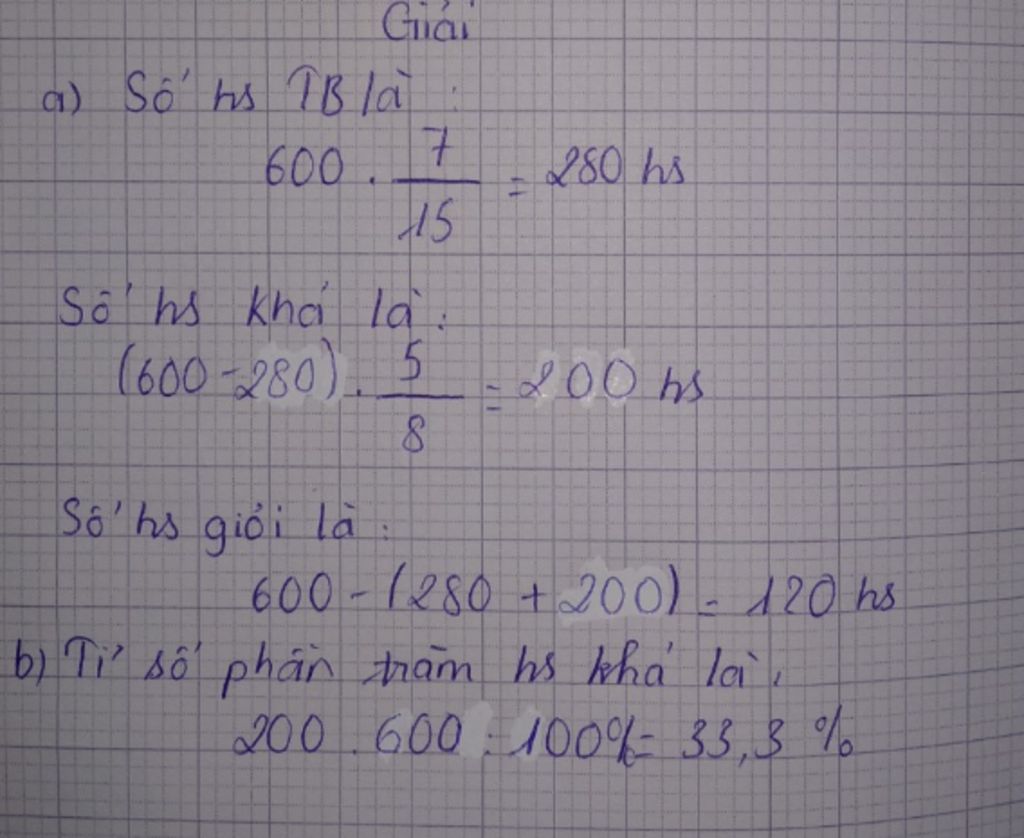 Giải
a) Số hs TB là :
600 . 7/15 = 280 hs
Số hs khá là :
(600 - 280) . 5/8 = 200 hs
Số hs giỏi là :
600 - (280 + 200) = 120 hs
b) Tỉ số phần trăm hs khá là :
200 . 600 : 100% = 33,3 %